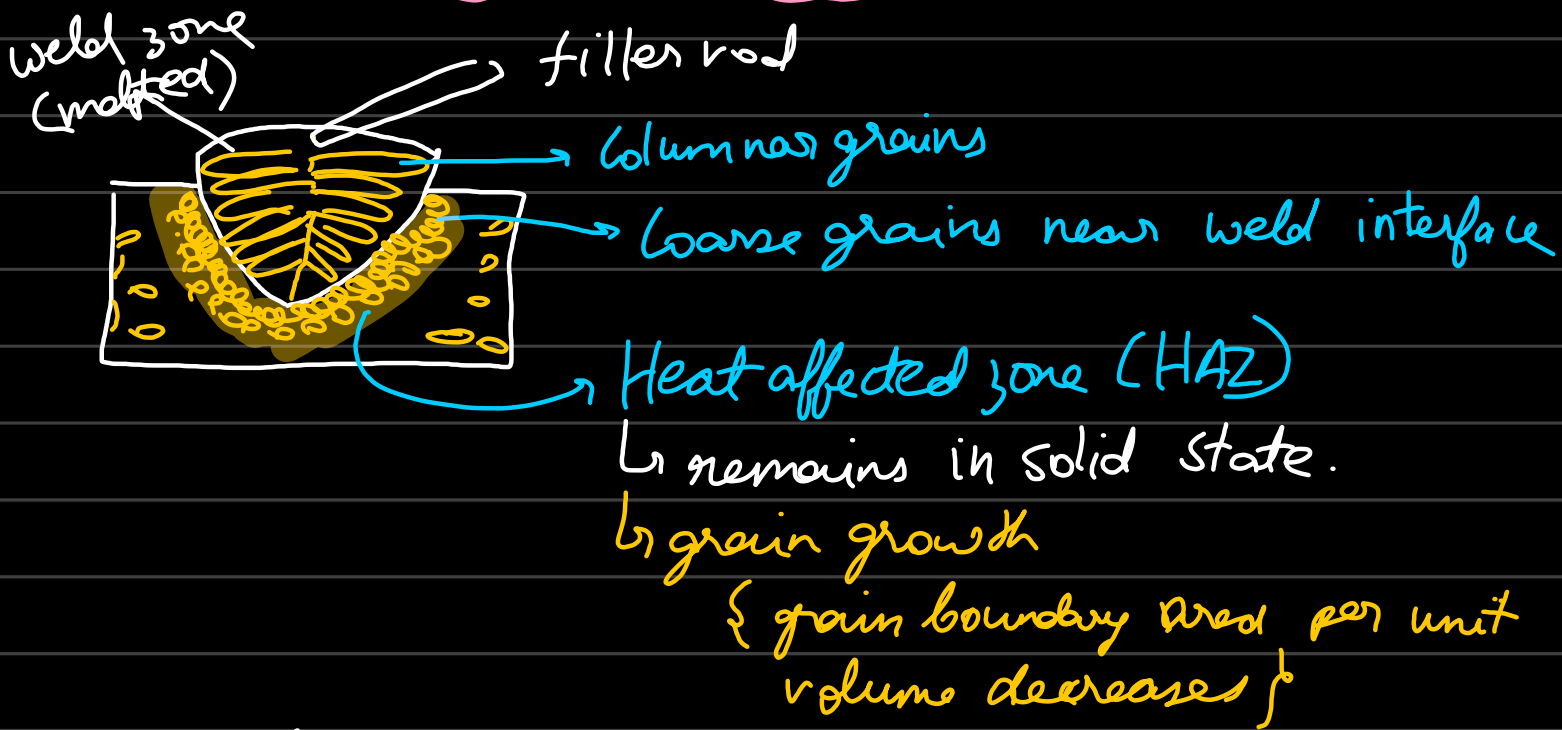 weld zone
(molted)
filler rod
Columnar grains
Coarse grains near weld interface
Heat affected zone (HAZ)
↳ remains in solid state.
↳ grain growth
{ grain boundary area per unit
volume decreases }